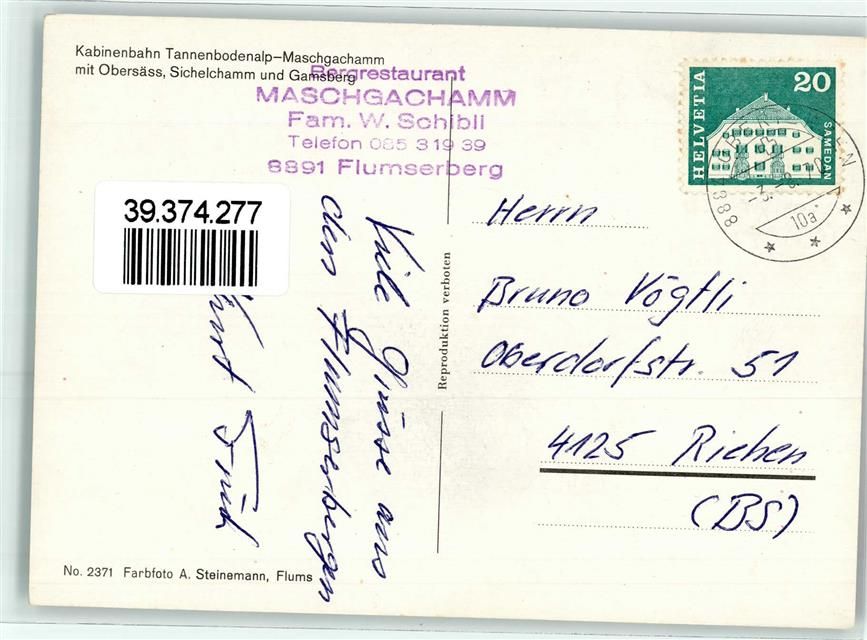 Kabinenbahn Tannenbodenalp–Maschgachamm
mit Obersäss, Sichelchamm und Gamsberg
Bergrestaurant
MASCHGACHAMM
Fam. W. Schibli
Telefon 085 3 19 39
8891 Flumserberg
39.374.277
Viele Grüsse aus
den Flumserbergen
HELVETIA
20
SAMEDAN
8888
10a
Herrn
Bruno Vögtli
Oberdorfstr. 51
4125 Riehen
(BS)
Reproduktion verboten
No. 2371 Farbfoto A. Steinemann, Flums